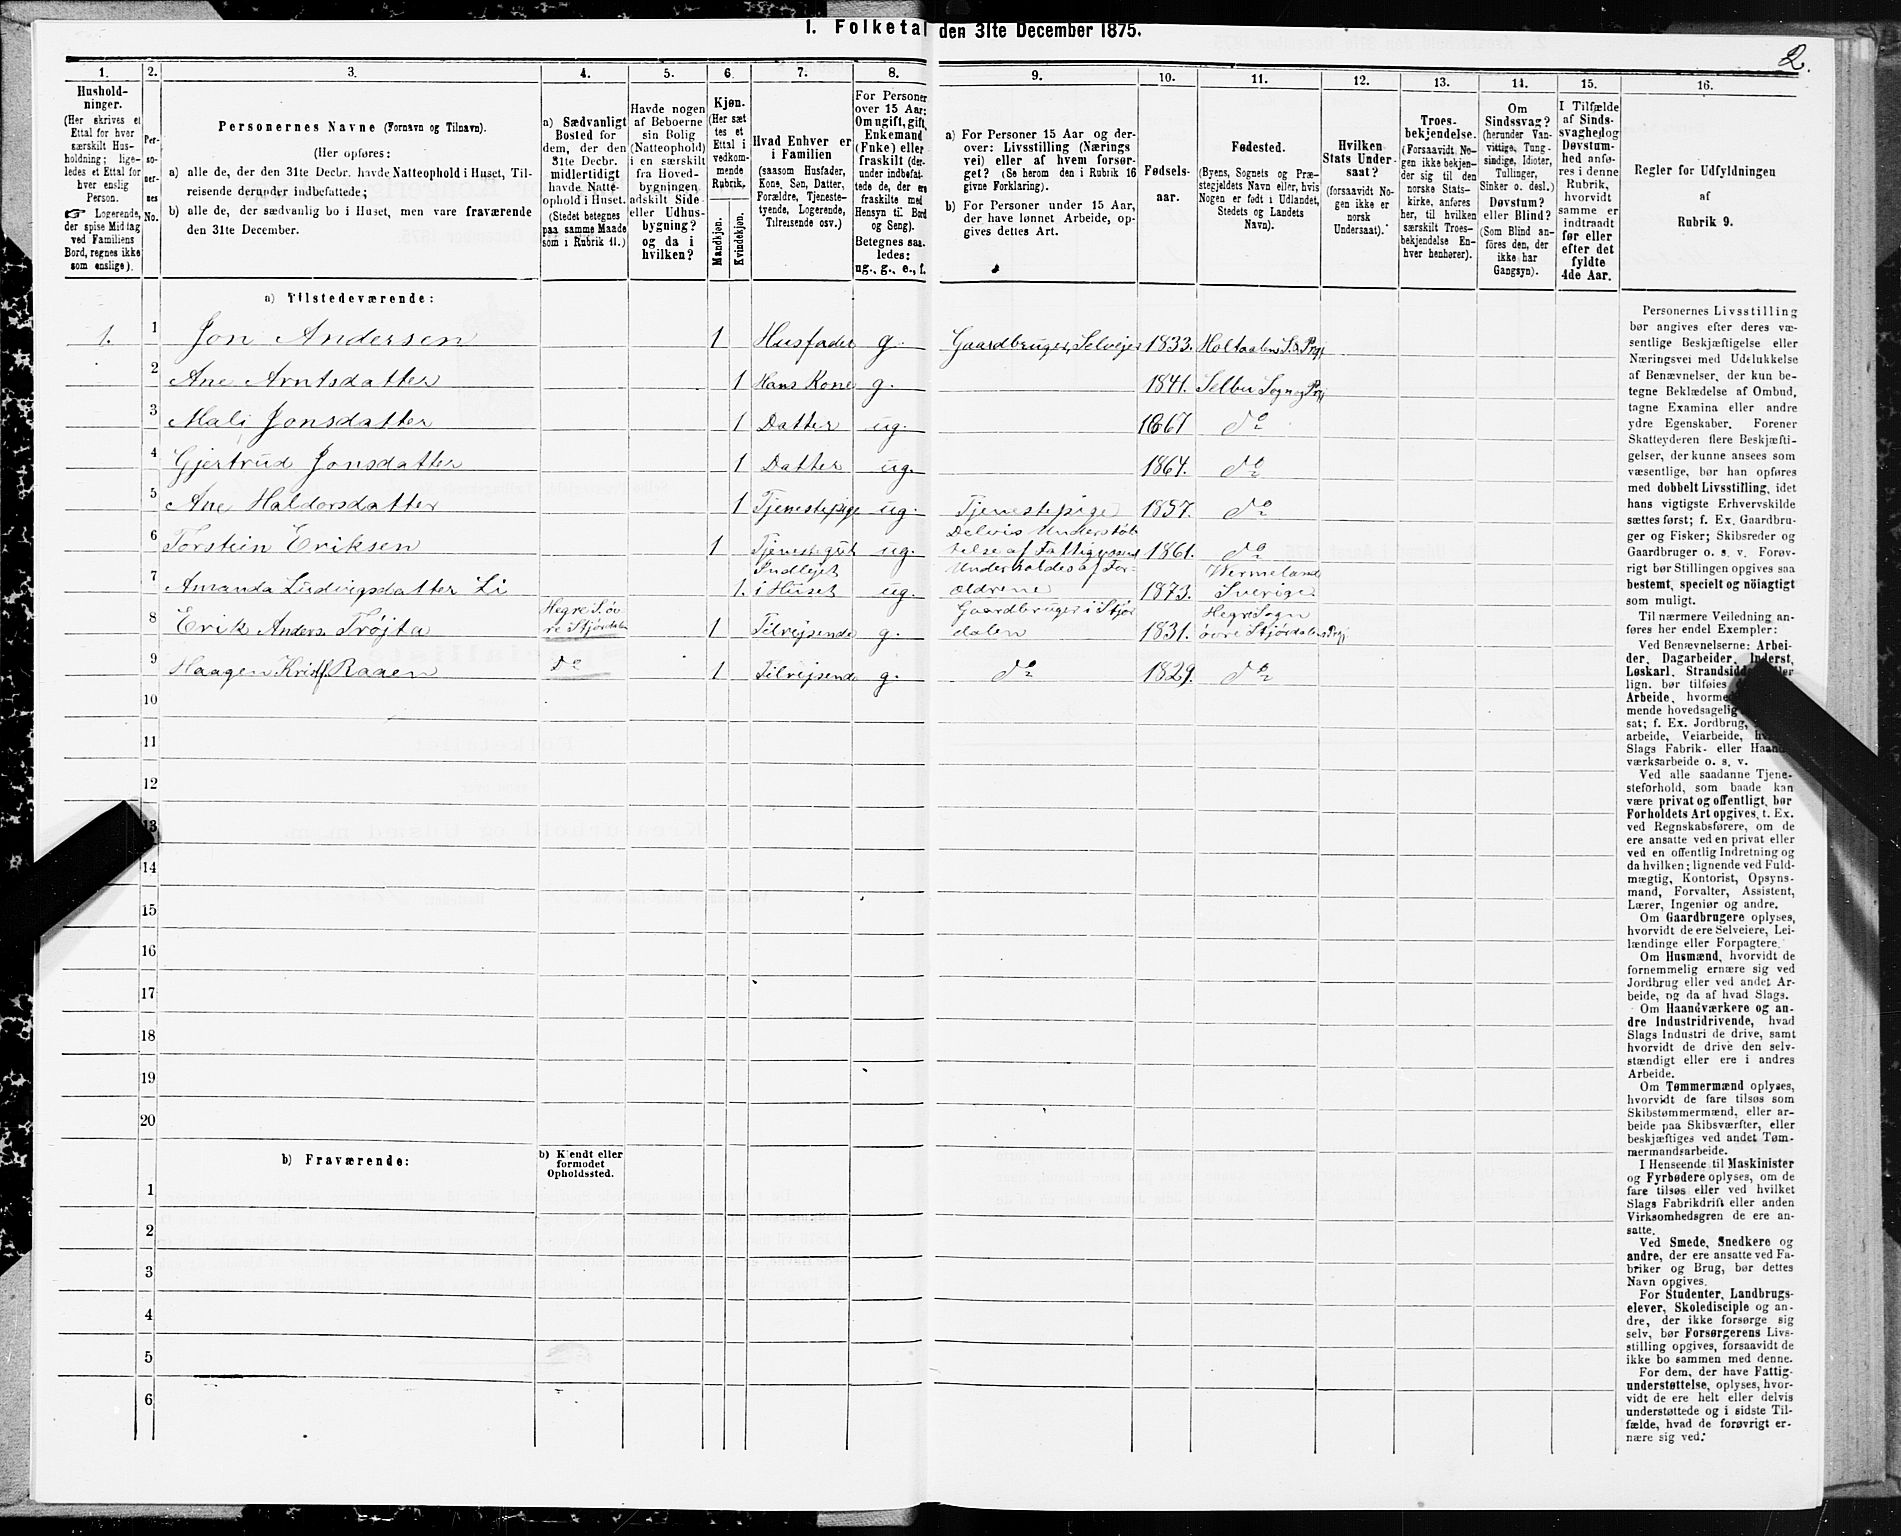 1. Folketal den 31te December 1875.
2.
1.
2.
3.
4.
5.
6.
7.
8.
9.
10.
11.
12.
13.
14.
15.
16.
Hushold-
ninger.
(Her skrives et
Ettal for hver
særskilt Hus-
holdning; lige-
ledes et Ettal for
hver enslig
Person.
☞ Logerende,
der spise Middag
ved Familiens
Bord, regnes ikke
som enslige).
Per-
so-
ner-
nes
No.
Personernes Navne (Fornavn og Tilnavn).
(Her opføres:
a) alle de, der den 31te Decbr. havde Natteophold i Huset, Til-
reisende derunder indbefattede;
b) alle de, der sædvanlig bo i Huset, men vare fraværende
den 31te December.
a) Sædvanligt
Bosted for
dem, der den
31te Decbr.
midlertidigt
havde Natte-
ophold i Huset.
(Stedet betegnes
paa samme Maade
som i Rubrik 11.)
Havde nogen
af Beboerne
sin Bolig
(Natteophold)
i en særskilt
fra Hoved-
bygningen
adskilt Side-
eller Udhus-
bygning?
og da i
hvilken?
Kjøn.
(Her sæt-
tes et
Ettal i
vedkom-
mende
Rubrik.
Mandkjøn.
Kvindekjøn.
Hvad Enhver er
i Familien
(saasom Husfader,
Kone, Søn, Datter,
Forældre, Tjeneste-
tyende, Logerende,
Tilreisende osv.)
For Personer
over 15 Aar:
Om ugift, gift,
Enkemand
(Enke) eller
fraskilt (der-
under indbefat-
tede de, der ere
fraskilte med
Hensyn til Bord
og Seng).
Betegnes saa-
ledes:
ug., g., e., f.
a) For Personer 15 Aar og der-
over: Livsstilling (Nærings-
vei) eller af hvem forsør-
get? (Se herom den i Rubrik 16
givne Forklaring).
b) For Personer under 15 Aar,
der have lønnet Arbeide, op-
gives dettes Art.
Fødsels-
aar.
Fødested.
(Byens, Sognets og Præ-
stegjeldets Navn eller, hvis
Nogen er født i Udlandet,
Stedets og Landets
Navn).
Hvilken
Stats Under-
saat?
(forsaavidt No-
gen ikke er
norsk
Undersaat).
Troes-
bekjendelse.
(Forsaavidt No-
gen ikke bekjen-
der sig til den
norske Stats-
kirke, anføres
her, til hvilken
særskilt Troes-
bekjendelse En-
hver henhører).
Om
Sindssvag?
(herunder Van-
vittige, Tung-
sindige, Idioter,
Tullinger,
Sinker o. desl.)
Døvstum?
eller Blind?
(Som Blind an-
føres den, der
ikke har
Gangsyn).
I Tilfælde
af Sinds-
svaghed og
Døvstum-
hed anfø-
res i denne
Rubrik,
hvorvidt
samme er
indtraadt
før eller
efter det
fyldte
4de Aar.
Regler for Udfyldningen
af
Rubrik 9.
a) Tilstedeværende:
1. 1 Jon Andersen 1 Husfader g. Gaardbruger, Selveier 1833. Holtaalens S. & Prgj
2 Ane Arntsdatter 1 Hans Kone g. 1841. Selbu Sogn og Prgj
3 Mali Jonsdatter 1 Datter ug. 1867 do
4 Gjertrud Jonsdatter 1 Datter ug. 1864. do
5 Ane Haldorsdatter 1 Tjenestepige ug. Tjenestepige 1857. do
6 Torstein Eriksen 1 Tjenestegut ug. Delvis Understøt-
telse af Fattigvæsnet 1861. do
7 Amanda Ludvigsdatter Li 1. Indlejet
i Huset ug. Underholdes af For-
ældrene 1873. Wermeland
Sverige
8 Erik Anders. Trøjta Hegre S. øv
re Stjørdalen 1 Tilrejsende g. Gaardbruger i Stjør
dalen 1831. Hegre Sogn
øvre Stjørdalens Prgj
9 Haagen Krist. Raaen do 1 Tilrejsende g. do 1829. do
10
11
12
13
14
15
16
17
18
19
20
b) Fraværende:
b) Kjendt eller
formodet
Opholdssted.
1
2
3
4
5
6
Personernes Livsstilling
bør angives efter deres væ-
sentlige Beskjæftigelse eller
Næringsvei med Udelukkelse
af Benævnelser, der kun be-
tegne Beklædelse af Ombud,
tagne Examina eller andre
ydre Egenskaber. Forener
Skatteyderen flere Beskjæfti-
gelser, der kunne ansees som
væsentlige, bør han opføres
med dobbelt Livsstilling, idet
hans vigtigste Erhvervskilde
sættes først; f. Ex. Gaardbru-
ger og Fisker; Skibsreder og
Gaardbruger o. s. v. Forøv-
rigt bør Stillingen opgives saa
bestemt, specielt og nöiagtigt
som muligt.
Til nærmere Veiledning an-
føres her endel Exempler:
Ved Benævnelserne: Arbei-
der, Dagarbeider, Inderst,
Løskarl, Strandsidder eller
lign. bør tilføies
Arbeide, hvormed
mende hovedsagelig
sat; f. Ex. Jordbrug,
arbeide, Veiarbeide,
Slags Fabrik- eller Haand-
værksarbeide o. s. v.
Ved alle saadanne Tjene-
steforhold, som baade kan
være privat og offentligt, bør
Forholdets Art opgives, t. Ex.
ved Regnskabsførere, om de
ere ansatte ved en privat eller
ved en offentlig Indretning og
da hvilken; lignende ved Fuld-
mægtig, Kontorist, Opsyns-
mand, Forvalter, Assistent,
Lærer, Ingeniør og andre.
Om Gaardbrugere oplyses,
hvorvidt de ere Selveiere, Lei-
lændinge eller Forpagtere.
Om Husmænd, hvorvidt de
fornemmelig ernære sig ved
Jordbrug eller ved andet Ar-
beide, og da af hvad Slags.
Om Haandværkere og an-
dre Industridrivende, hvad
Slags Industri de drive, samt
hvorvidt de drive den selv-
stændigt eller ere i andres
Arbeide.
Om Tømmermænd oplyses,
hvorvidt de fare tilsøs som
Skibstømmermænd, eller ar-
beide paa Skibsværfter, eller
beskjæftiges ved andet Tøm-
mermandsarbeide.
I Henseende til Maskinister
og Fyrbødere oplyses, om de
fare tilsøs eller ved hvilket
Slags Fabrikdrift eller anden
Virksomhedsgren de ere an-
satte.
Ved Smede, Snedkere og
andre, der ere ansatte ved Fa-
briker og Brug, bør dettes
Navn opgives.
For Studenter, Landbrugs-
elever, Skoledisciple og an-
dre, der ikke forsørge sig
selv, bør Forsørgerens Livs-
stilling opgives, forsaavidt de
ikke bo sammen med denne.
For dem, der have Fattig-
understøttelse, oplyses, hvor-
vidt de ere helt eller delvis
understøttede og i sidste Til-
fælde, hvad de forøvrigt er-
nære sig ved.